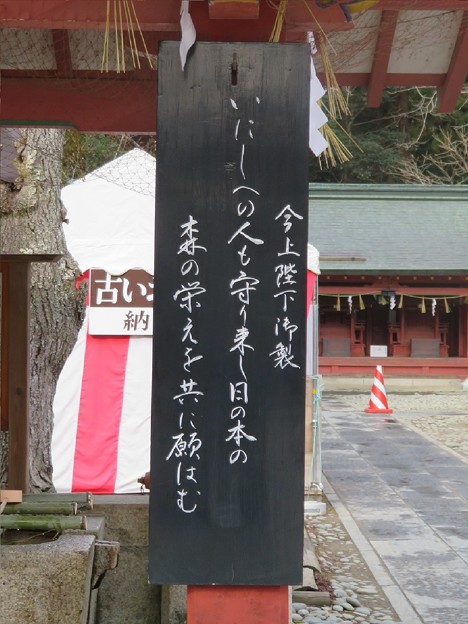 今上陛下御製
いにしへの人も守り来し日の本の
森の栄えを共に願はむ
古い
納